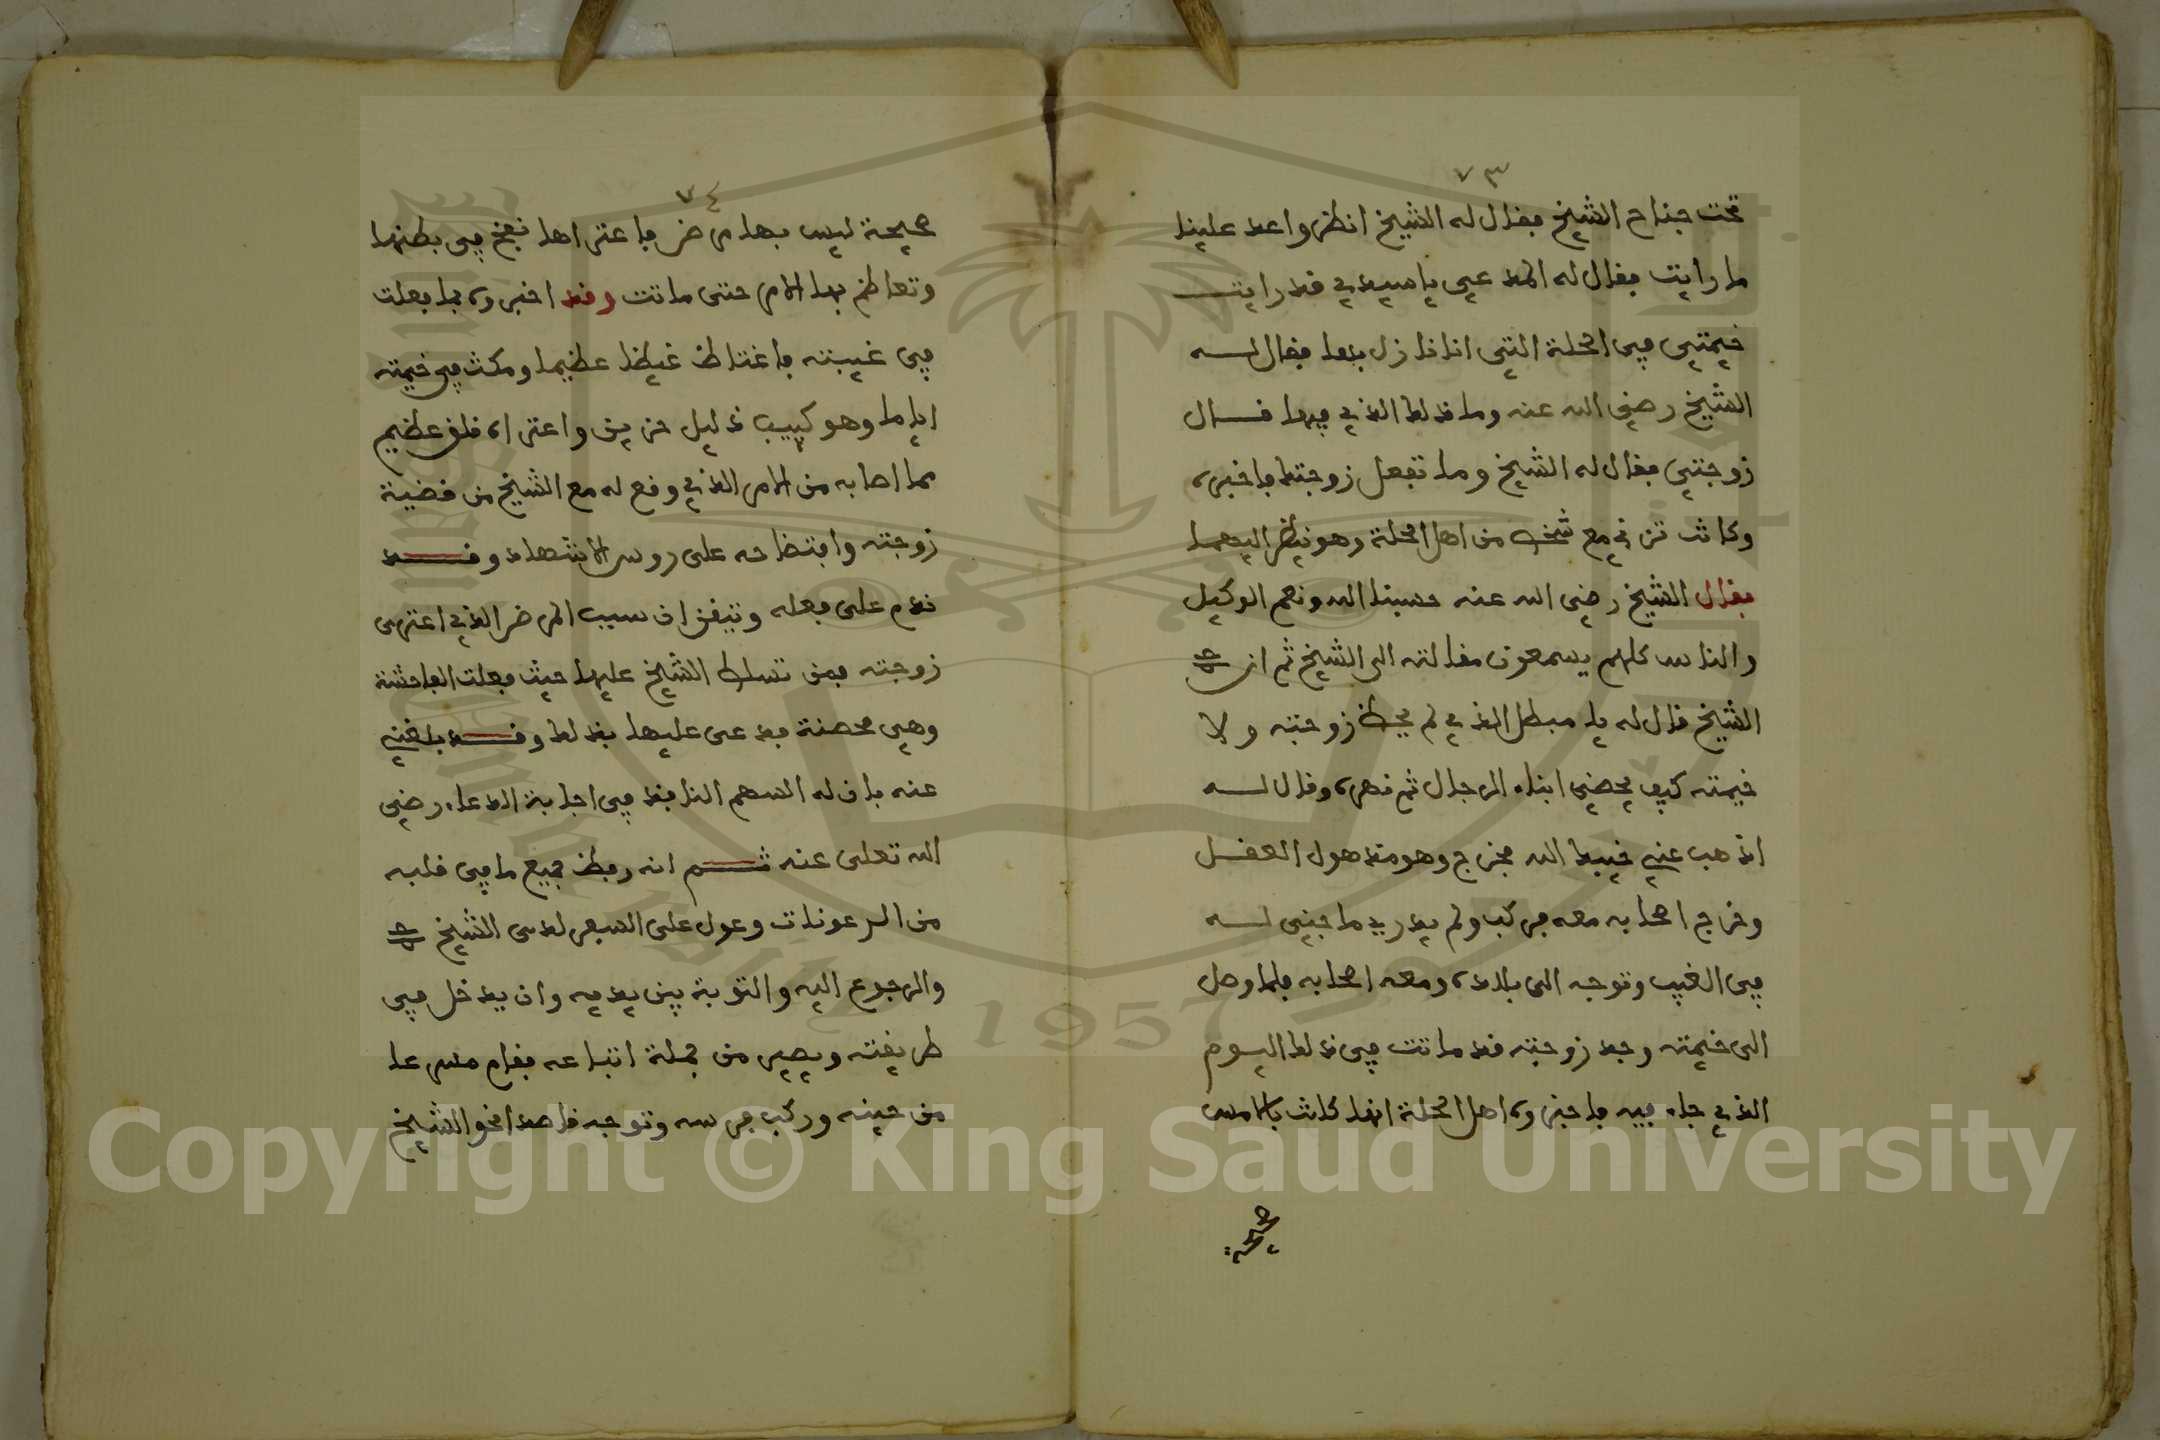 ٧٣
تحت جناح الشيخ فقال له الشيخ انظر واعد علينا
ما رايت فقال له المدعي يا سيدي قد رايت
خيمتي في المحلة التي انا نازل بها فقال له
الشيخ رضي الله عنه وما ذلك الذي فيها قال
زوجتي فقال له الشيخ وما تفعل زوجتك فاخبره
وكانت تزني مع شخص من اهل المحلة وهو ينظر اليهما
فقال الشيخ رضي الله عنه حسبنا الله ونعم الوكيل
والناس كلهم يسمعون مقالته الى الشيخ ثم ان
الشيخ قال له يا مبطل الذي لم يحفظ زوجته ولا
خيمته كيف يحضي ابناء الرجال ثم نهره وقال له
اذهب عني خيبك الله فخرج وهو مذهول العقل
وخرج اصحابه معه فركب ولم يدري ما خبي له
في الغيب وتوجه الى بلاده ومعه اصحابه فلما وصل
الى خيمته وجد زوجته قد ماتت في ذلك اليوم
الذي جاء فيه فاخبروه اهل المحلة انها كانت بالامس
صحيحة
٧٤
صحيحة ليس بها مرض فاعتراها نفخ في بطنها
وتعاظم بها الامر حتى ماتت وقد اخبروه بما فعلت
في غيبته فاغتاظ غيظا عظيما ومكث في خيمته
اياما وهو كييب ذليل حزين واعتراه قلق عظيم
مما اصابه من الامر الذي وقع له مع الشيخ من قضية
زوجته وافتضاحه على روس الاشهاد وقد
ندم على فعله وتيقن ان سبب المرض الذي اعترى
زوجته فمن تسلط الشيخ عليها حيث فعلت الفاحشة
وهي محصنة فدعى عليها بذلك وقد بلغني
عنه بان له السهم النافذ في اجابة الدعاء رضي
الله تعلى عنه ثم انه رفض جميع ما في قلبه
من الرعونات وعول على السفر لدى الشيخ
والرجوع اليه والتوبة بين يديه وان يدخل في
طريقته ويصير من جملة اتباعه فقام مسرعا
من حينه وركب فرسه وتوجه قاصدا نحو الشيخ
Copyright © King Saud University
1957